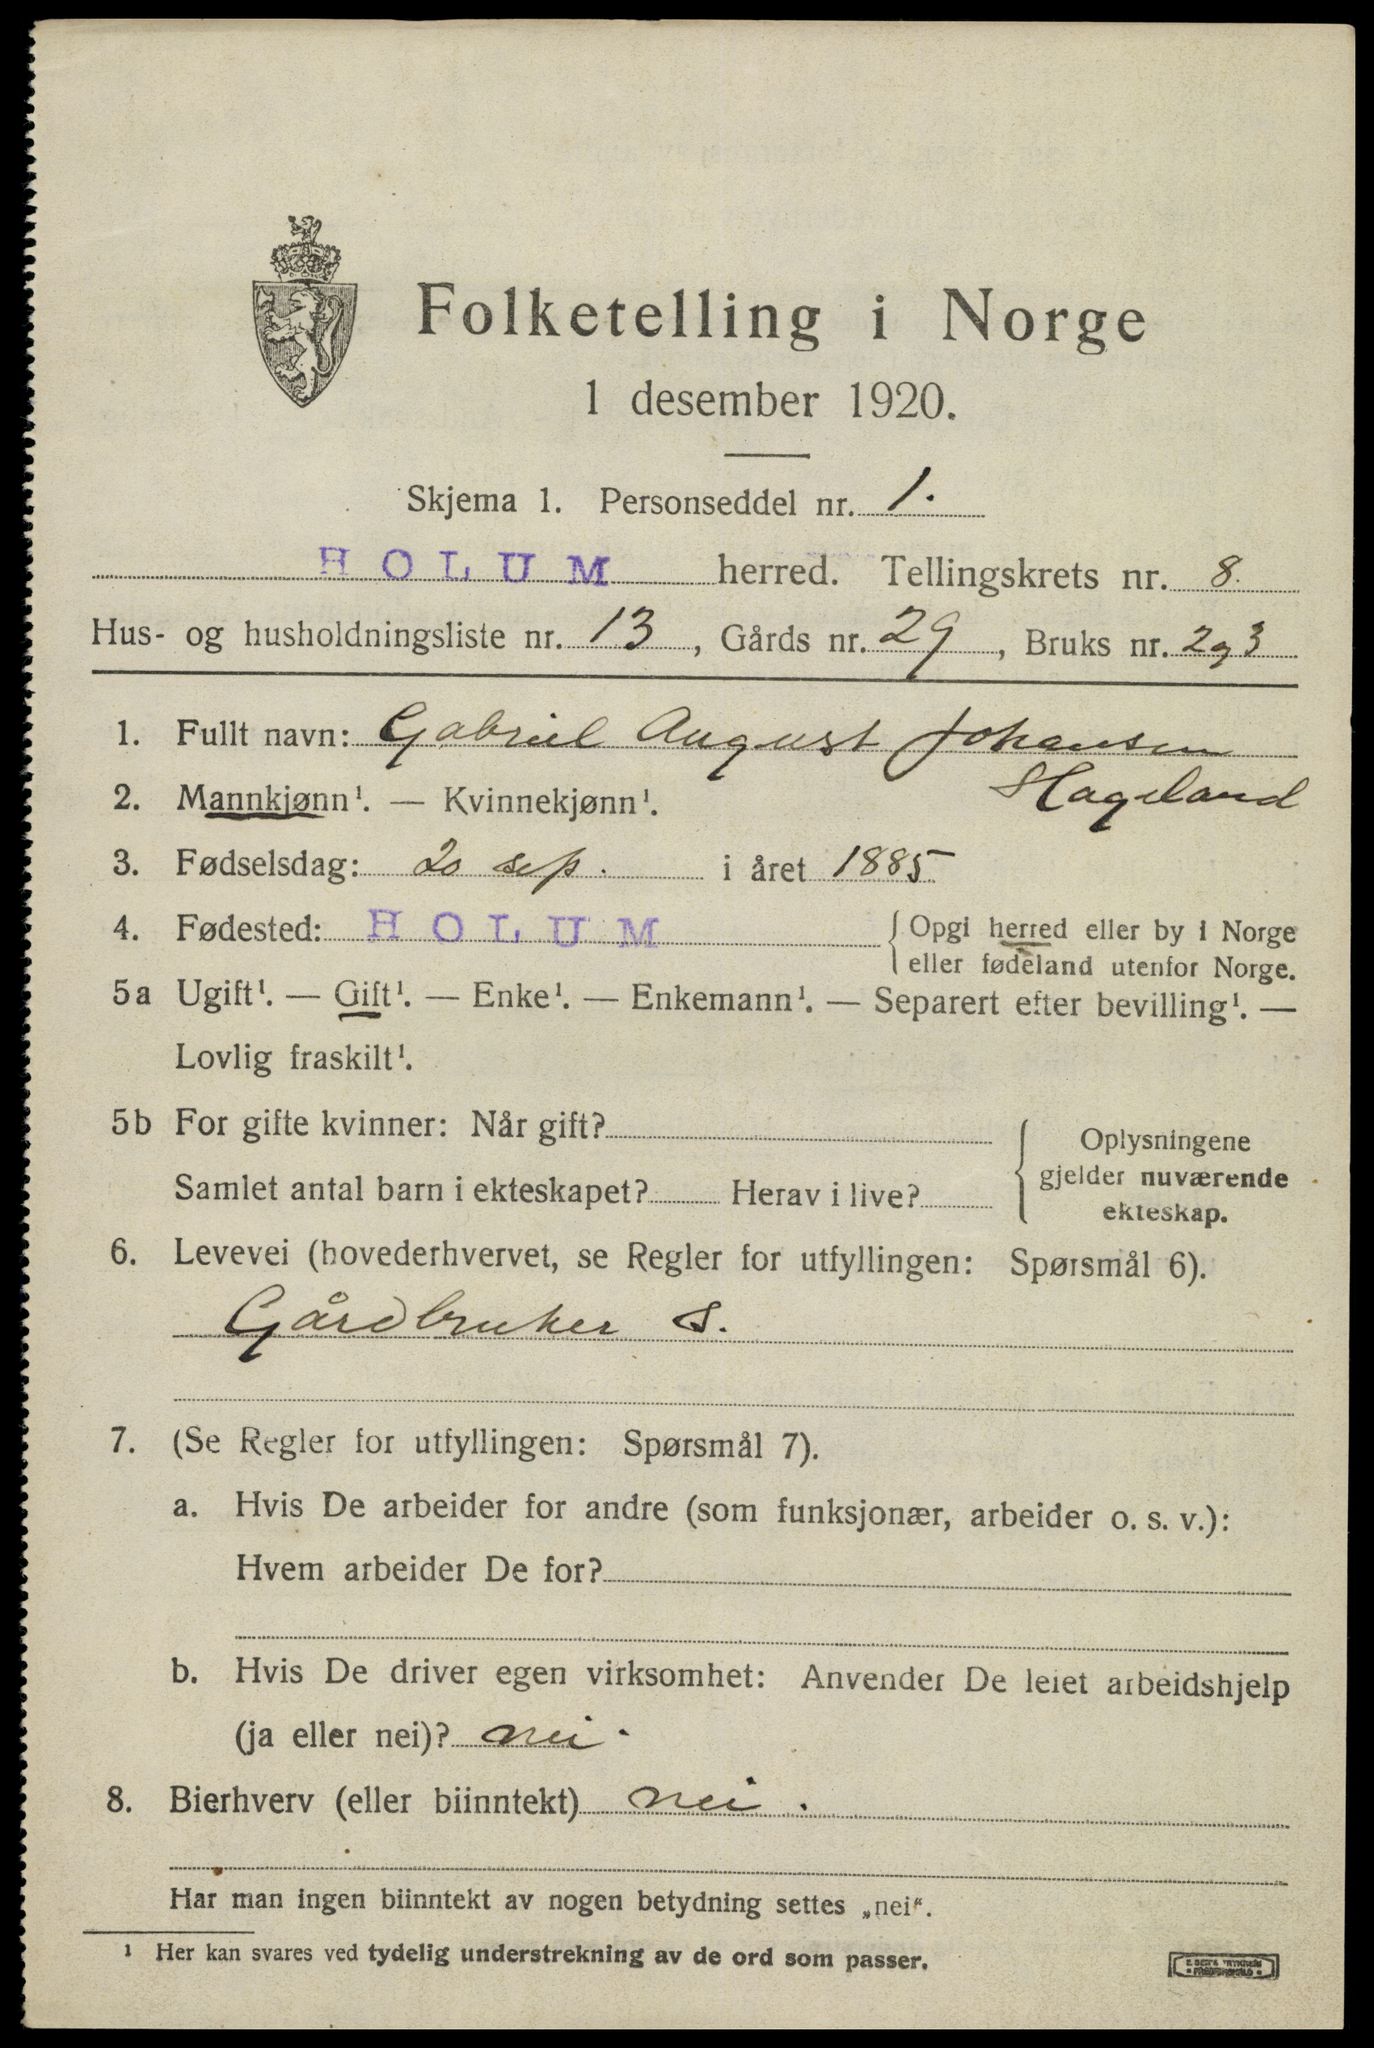 Folketelling i Norge
1 desember 1920.
Skjema 1. Personseddel nr. 1.
HOLUM herred. Tellingskrets nr. 8.
Hus- og husholdningsliste nr. 13, Gårds nr. 29, Bruks nr. 2 og 3
1. Fullt navn: Gabriel August Johansen
Hageland
2. Mannkjønn¹. — Kvinnekjønn¹.
3. Fødselsdag: 20 sep. i året 1885
4. Fødested: HOLUM { Opgi herred eller by i Norge
eller fødeland utenfor Norge.
5a Ugift¹. — Gift¹. — Enke¹. — Enkemann¹. — Separert efter bevilling¹. —
Lovlig fraskilt¹.
5b For gifte kvinner: Når gift?
Samlet antal barn i ekteskapet? Herav i live?
Oplysningene
gjelder nuværende
ekteskap.
6. Levevei (hovederhvervet, se Regler for utfyllingen: Spørsmål 6).
Gårdbruker S.
7. (Se Regler for utfyllingen: Spørsmål 7).
a. Hvis De arbeider for andre (som funksjonær, arbeider o. s. v.):
Hvem arbeider De for?
b. Hvis De driver egen virksomhet: Anvender De leiet arbeidshjelp
(ja eller nei)? nei.
8. Bierhverv (eller biinntekt) nei.
Har man ingen biinntekt av nogen betydning settes „nei“.
¹ Her kan svares ved tydelig understrekning av de ord som passer.